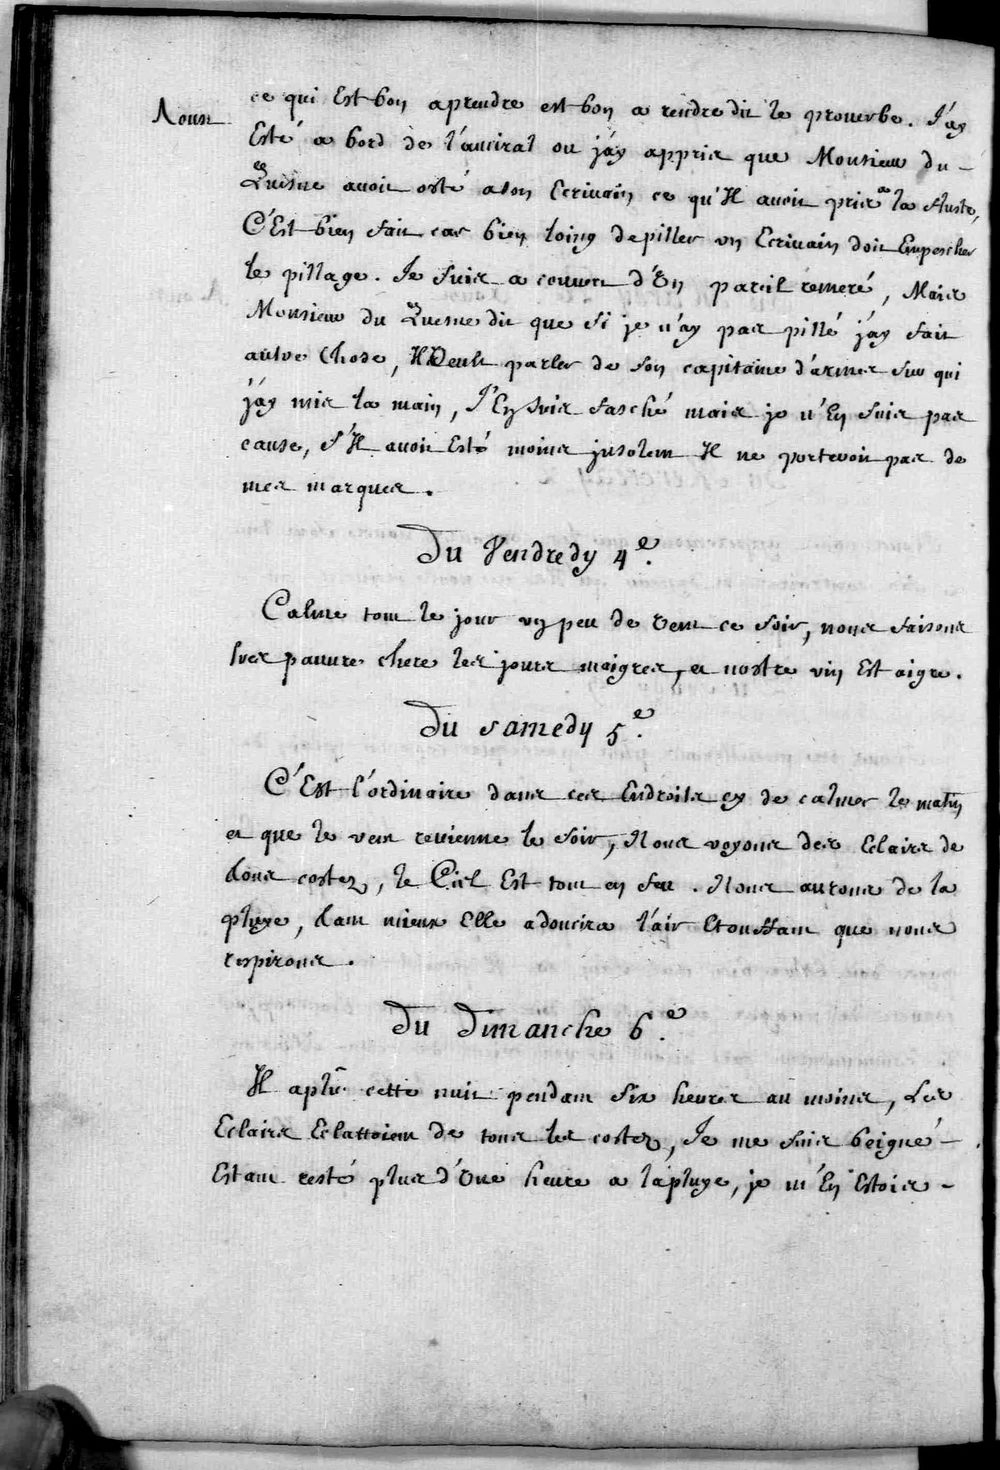 Aoust
ce qui Est bon a prendre est bon a rendre dit le prouerbe. J'ay
Esté a bord de l'amiral ou j'ay appris que Monsieur du -
Quesne auoit osté a son Ecriuain ce qu'Il auoit pris a la fluste,
C'Est bien fait car bien loing de piller un Ecriuain doit Empescher
le pillage. Je suis a couuert d'En pareil remeré, Mais
Monsieur du Quesne dit que si je n'ay pas pillé j'ay fait
autre Chose, Il Veult parler de son capitaine d'armes sur qui
j'ay mis la main, J'En suis fasché mais je n'En suis pas
cause, s'Il auoit Esté moins jnsolent Il ne porteroit pas de
mes marques.
Du Vendredy 4e.
Calme tout le jour un peu de vent ce soir, nous faisons
tres pauure chere les jours maigres, et nostre vin Est aigre.
Du samedy 5e.
C'Est l'ordinaire dans ces Endroits cy de calmer le matin
et que le vent reuienne le soir, Nous voyons des Eclairs de
tous costez, le Ciel Est tout en feu. Nous aurons de la
pluye, tant mieux Elle adoucira l'air Etouffant que nous
respirons.
Du Dimanche 6e.
Il a plû cette nuit pendant six heures au moins, Les
Eclairs Eclattoient de tous les costez, Je me suis beigné -
Estant resté plus d'Une heure a la pluye, je m'En Estois -